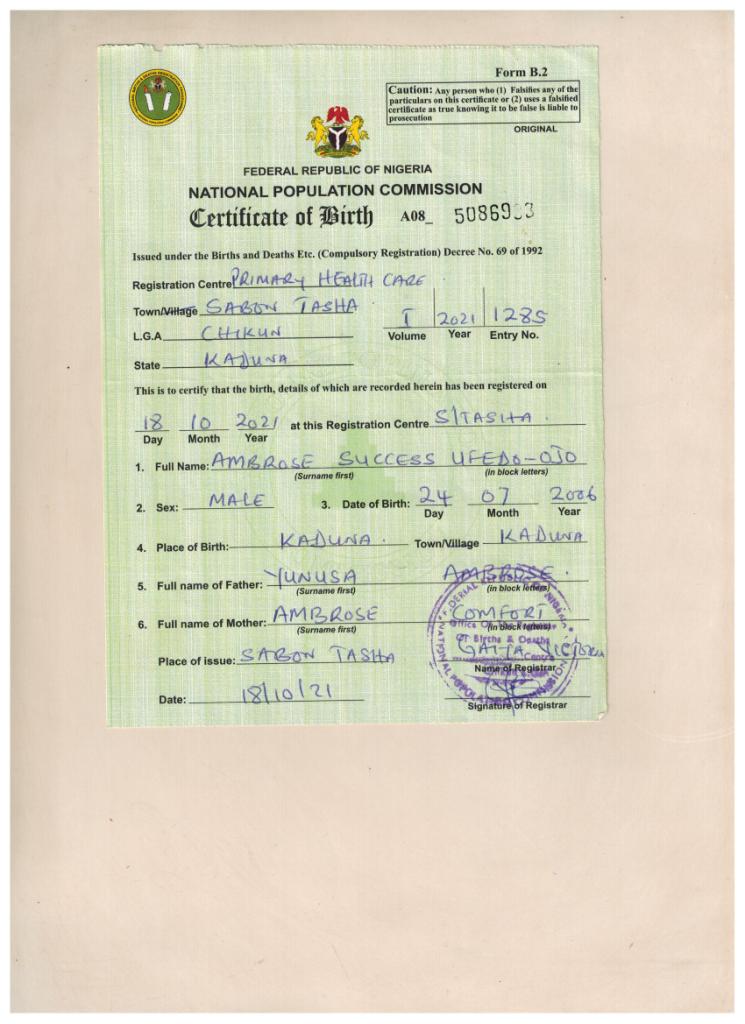 Form B.2
Caution: Any person who (1) Falsifies any of the
particulars on this certificate or (2) uses a falsified
certificate as true knowing it to be false is liable to
prosecution
ORIGINAL
FEDERAL REPUBLIC OF NIGERIA
NATIONAL POPULATION COMMISSION
Certificate of Birth A08_
Issued under the Births and Deaths Etc. (Compulsory Registration) Decree No. 69 of 1992
Registration Centre PRIMARY HEALTH CARE
Town/Village SABON TASHA
I 2021 1285
L.G.A CHIKUN
Volume Year Entry No.
State KADUNA
This is to certify that the birth, details of which are recorded herein has been registered on
18 10 2021 at this Registration Centre S/TASHA.
Day Month Year
1. Full Name: AMBROSE SUCCESS UFEDO-OJO
(Surname first) (in block letters)
2. Sex: MALE 3. Date of Birth: 24 07 2006
Day Month Year
4. Place of Birth: KADUNA. Town/Village KADUNA
5. Full name of Father: YUNUSA AMBROSE.
(Surname first) (in block letters)
6. Full name of Mother: AMBROSE COMFORT
(Surname first) (in block letters)
Of Births & Deaths
Place of issue: SABON TASHA VICTORIA
Name of Registrar
Date: 18/10/21
Signature of Registrar